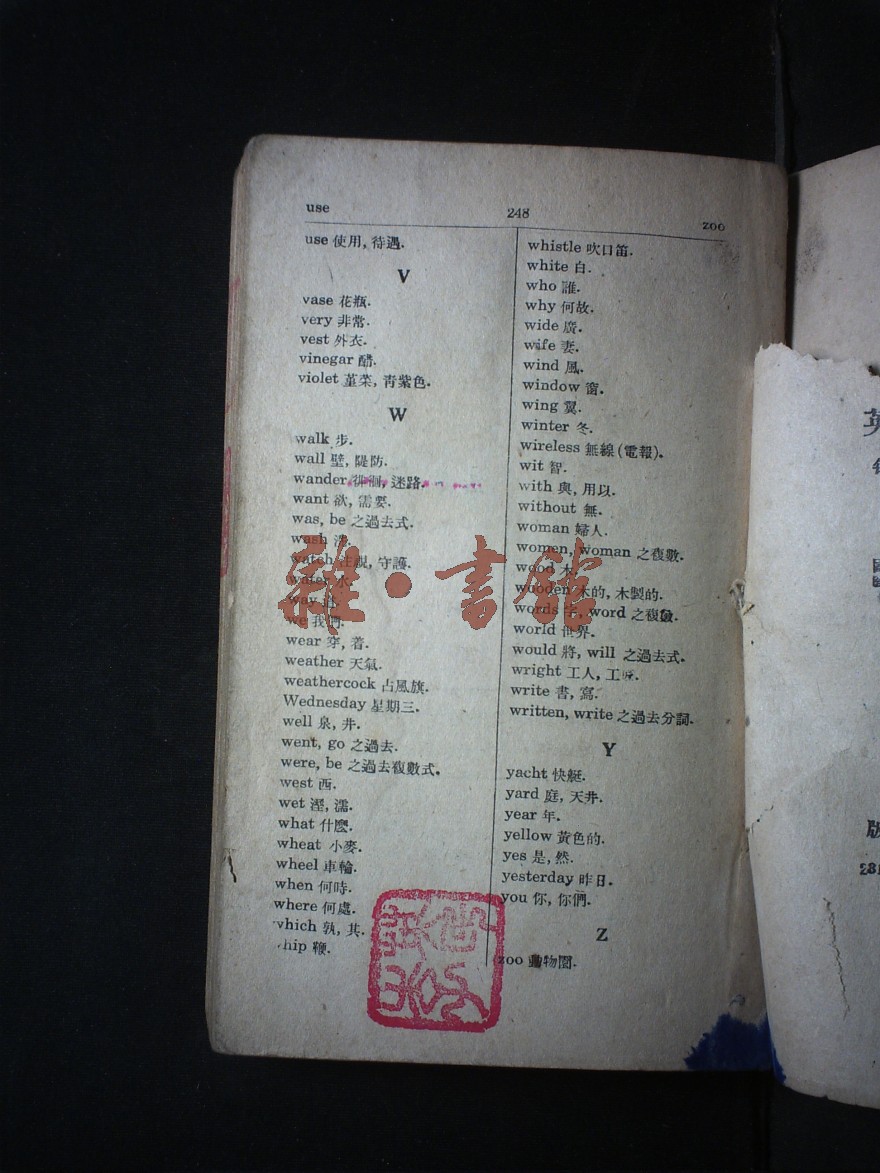 use 248 zoo
use 使用, 待遇.
V
vase 花瓶.
very 非常.
vest 外衣.
vinegar 醋.
violet 堇菜, 青紫色.
W
walk 步.
wall 壁, 隄防.
wander 徘徊, 迷路.
want 欲, 需要.
was, be 之過去式.
wash 洗.
watch 注視, 守護.
water 水.
way 道.
we 我們.
wear 穿, 着.
weather 天氣.
weathercock 占風旗.
Wednesday 星期三.
well 泉, 井.
went, go 之過去.
were, be 之過去複數式.
west 西.
wet 溼, 濡.
what 什麽.
wheat 小麥.
wheel 車輪.
when 何時.
where 何處.
which 孰, 其.
whip 鞭.
whistle 吹口笛.
white 白.
who 誰.
why 何故.
wide 廣.
wife 妻.
wind 風.
window 窗.
wing 翼.
winter 冬.
wireless 無線(電報).
wit 智.
with 與, 用以.
without 無.
woman 婦人.
women, woman 之複數.
wood 木.
wooden 木的, 木製的.
words 字, word 之複數.
world 世界.
would 將, will 之過去式.
wright 工人, 工匠.
write 書, 寫.
written, write 之過去分詞.
Y
yacht 快艇.
yard 庭, 天井.
year 年.
yellow 黃色的.
yes 是, 然.
yesterday 昨日.
you 你, 你們.
Z
zoo 動物園.
雜·書館
英
版